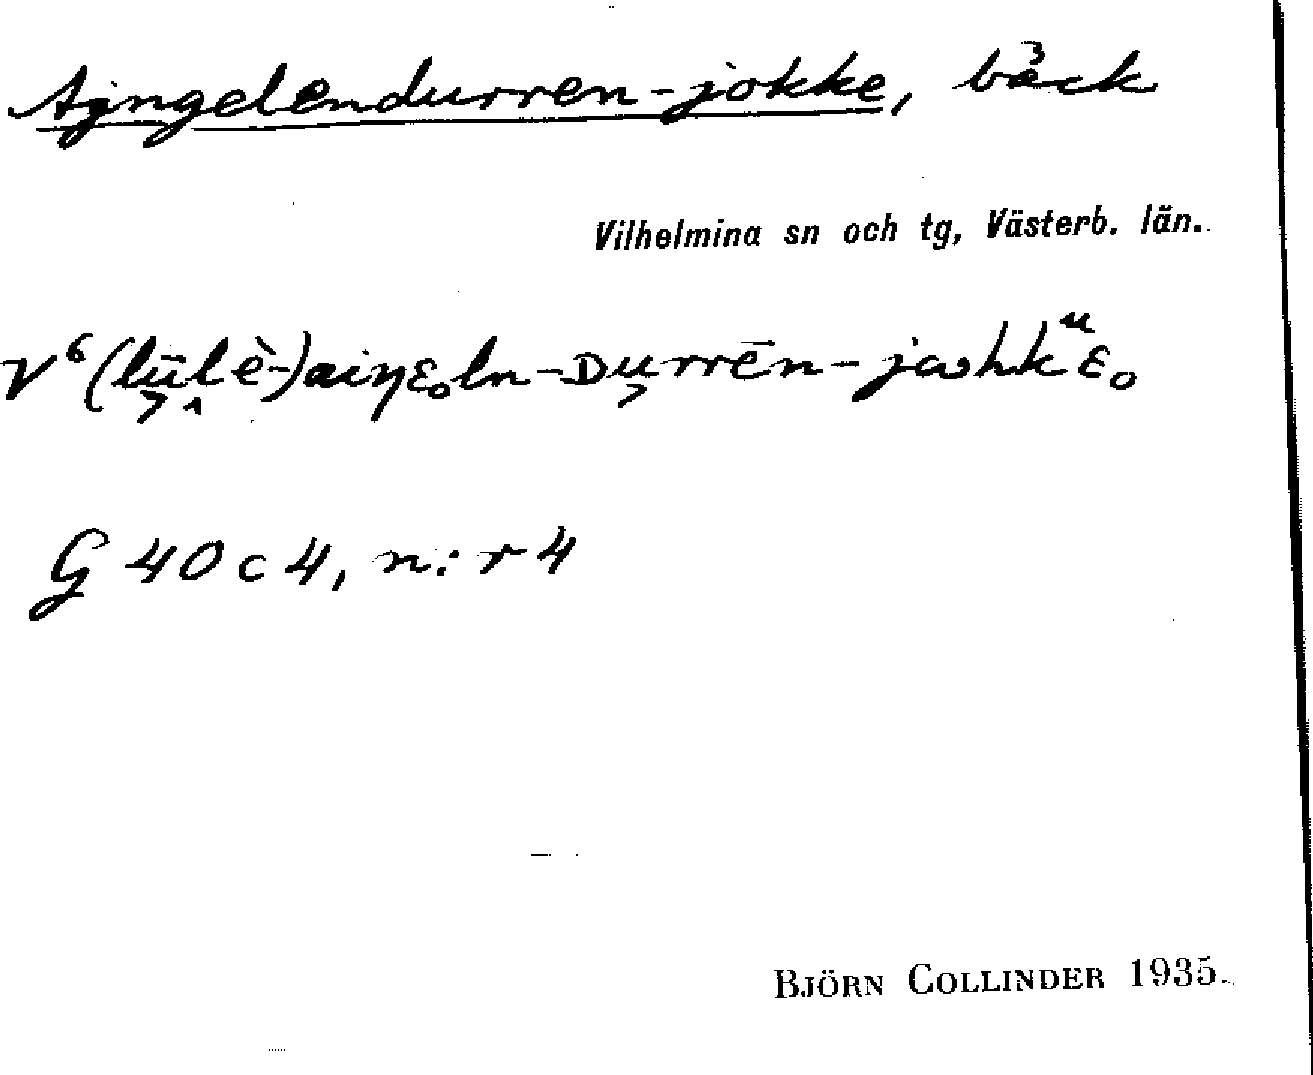 Ajngelendurren-jokke, bäck
Vilhelmina sn och tg, Västerb. län.
V⁶ (lu̅lè-)aiŋɛₒln-ᴅurrēn-jωhkᵘɛₒ
G 40 c 4, n:r 4
BJÖRN COLLINDER 1935.